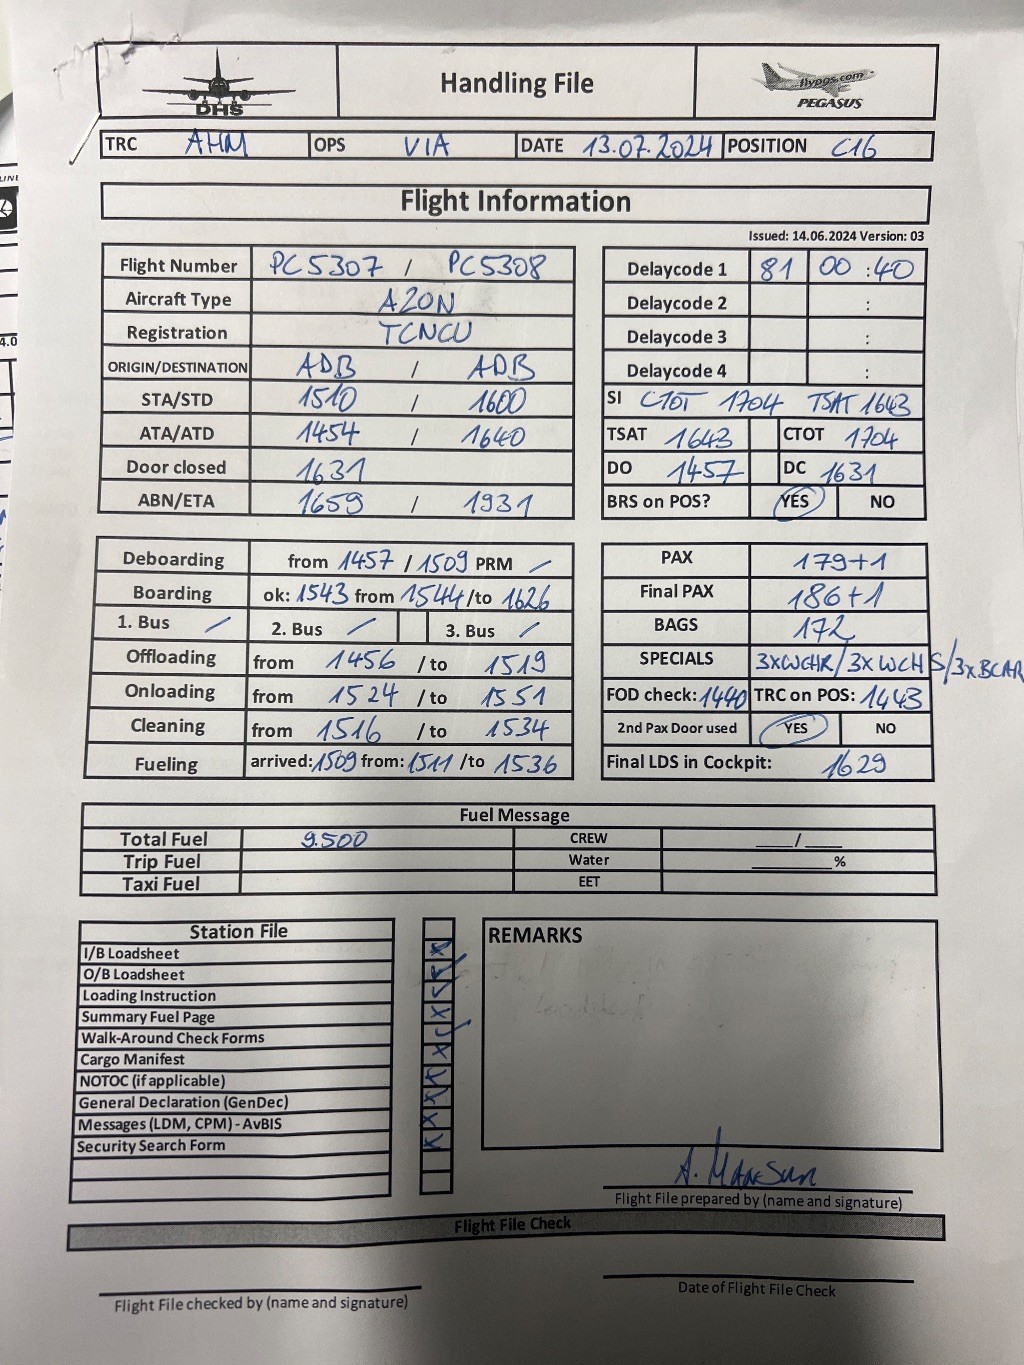 DHS
Handling File
flypgs.com
PEGASUS
TRC AHM OPS VIA DATE 13.07.2024 POSITION C16
Flight Information
Issued: 14.06.2024 Version: 03
Flight Number PC5307 / PC5308
Aircraft Type A20N
Registration TCNCU
ORIGIN/DESTINATION ADB / ADB
STA/STD 1510 / 1600
ATA/ATD 1454 / 1640
Door closed 1631
ABN/ETA 1659 / 1931
Delaycode 1 81 00 :40
Delaycode 2 :
Delaycode 3 :
Delaycode 4 :
SI CTOT 1704 TSAT 1643
TSAT 1643 CTOT 1704
DO 1457 DC 1631
BRS on POS? YES NO
Deboarding from 1457 / 1509 PRM /
Boarding ok: 1543 from 1544 /to 1626
1. Bus / 2. Bus / 3. Bus /
Offloading from 1456 / to 1519
Onloading from 1524 / to 1551
Cleaning from 1516 / to 1534
Fueling arrived: 1509 from: 1511 /to 1536
PAX 179+1
Final PAX 186+1
BAGS 172
SPECIALS 3xWCHR/3xWCHS/3xBCAR
FOD check: 1440 TRC on POS: 1443
2nd Pax Door used YES NO
Final LDS in Cockpit: 1629
Fuel Message
Total Fuel 9.500 CREW ____/____
Trip Fuel Water ________%
Taxi Fuel EET
Station File
I/B Loadsheet
O/B Loadsheet
Loading Instruction
Summary Fuel Page
Walk-Around Check Forms
Cargo Manifest
NOTOC (if applicable)
General Declaration (GenDec)
Messages (LDM, CPM) - AvBIS
Security Search Form
REMARKS
A. Mansur
Flight File prepared by (name and signature)
Flight File Check
Flight File checked by (name and signature)
Date of Flight File Check